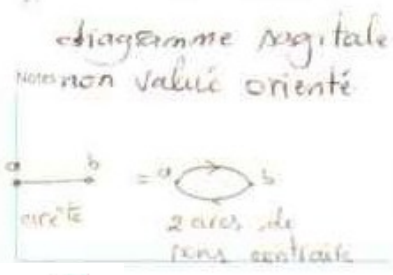 diagramme sagitale
Notes non valué orienté
a b = a b
arête 2 arcs de
sens contraire